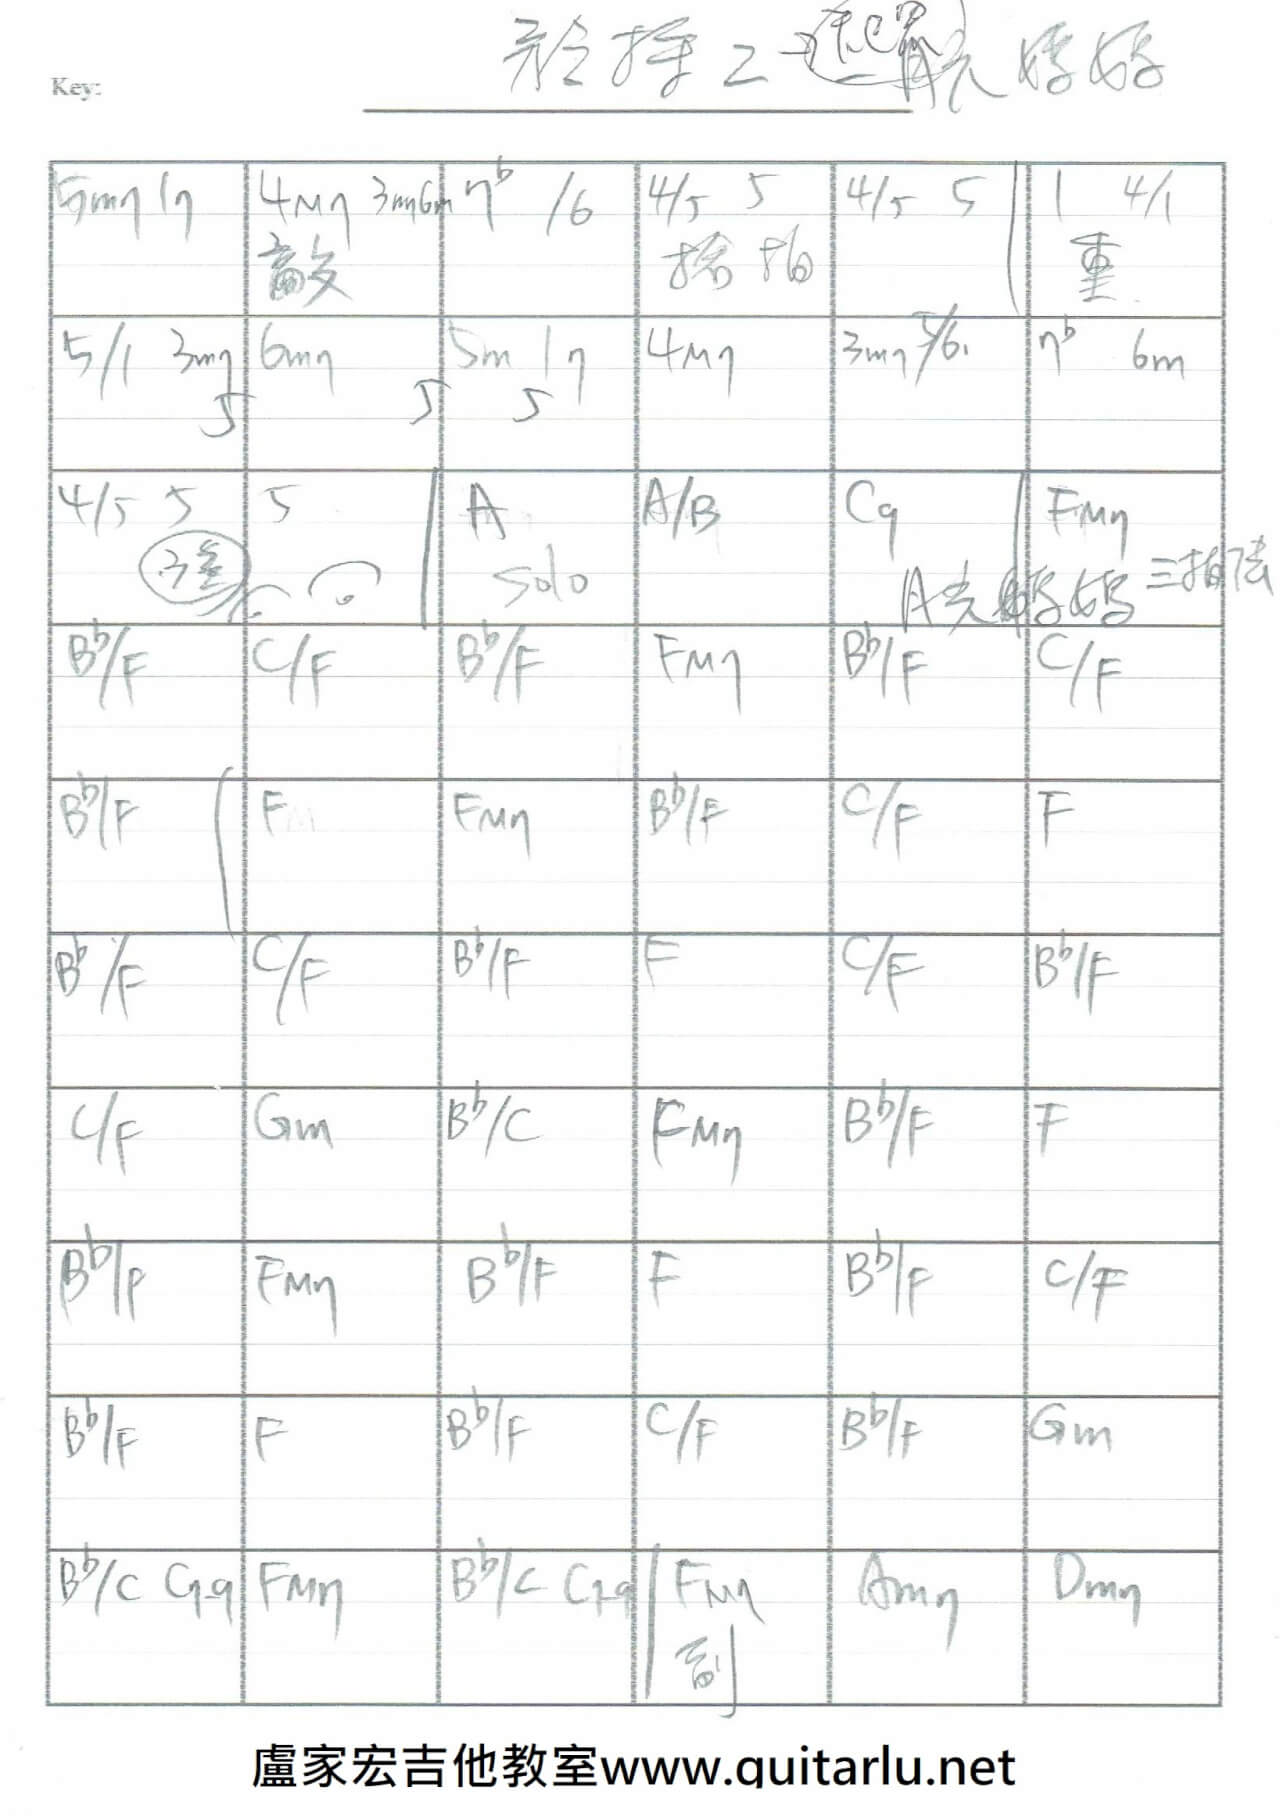 Key:
5m7 17 4M7 3m7 6m 7b /6 4/5 5 4/5 5 1 4/1
敲 搭 拍 重
5/1 3m7 6m7 5m 17 4M7 3m7 5/6 7b 6m
5 5 5
4/5 5 5 A A/B C9 FM7
solo 月亮 媽 三拍法
Bb/F C/F Bb/F FM7 Bb/F C/F
Bb/F F FM7 Bb/F C/F F
Bb/F C/F Bb/F F C/F Bb/F
C/F Gm Bb/C FM7 Bb/F F
Bb/F FM7 Bb/F F Bb/F C/F
Bb/F F Bb/F C/F Bb/F Gm
Bb/C FM7 Bb/C FM7 Am7 Dm7
副
盧家宏吉他教室www.guitarlu.net